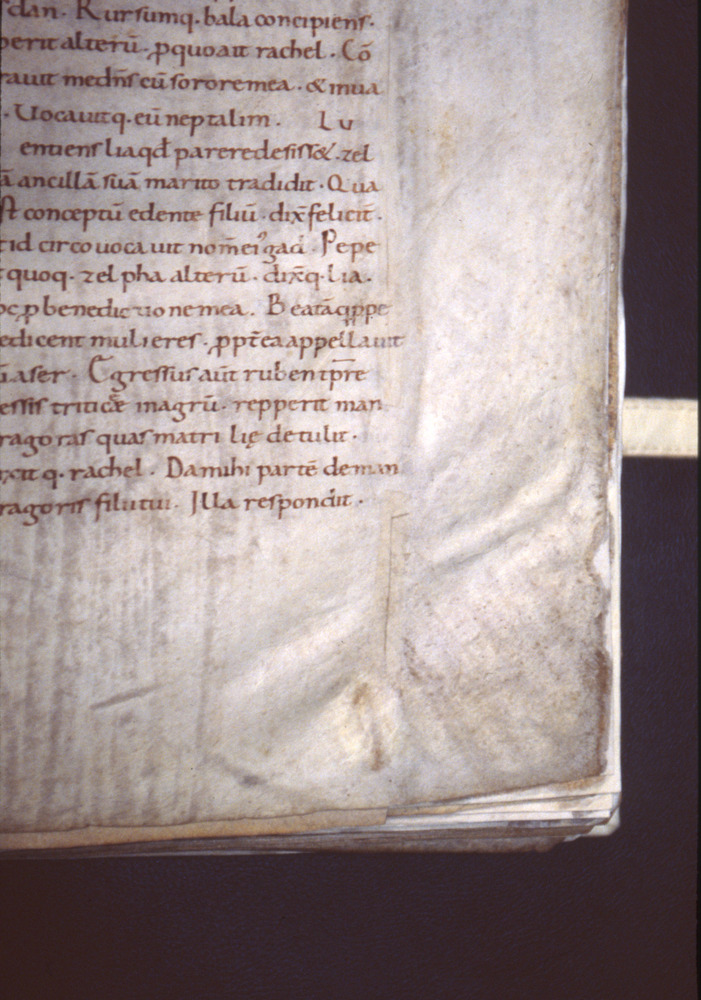 dan. Rursumq. bala concipiens.
perit alterū. ꝓ quo ait rachel. Cō
rauit me dn̄s cū sorore mea. & inua
. Uocauitq. eū neptalim. Lu
entiens lia qd̄ parere desiss&. zel
ā ancillā suā marito tradidit. Qua
st conceptū edente filiū. dix̄ felicit.
t id circo uoca uit nom̄ ei9 gad. Pepe
t quoq. zelpha alterū. dix̄q. lia.
oc ꝓ benedic tio ne mea. Beatā qippe
e dicent mulieres. ꝓpt̄ea appellauit
ū aser. Egressus aūt ruben tp̄re
essis triticæ in agrū. repperit man
ragoras quas matri lię detulit.
ixit q. rachel. Da mihi partē de man
ragoris filii tui. Illa respondit.